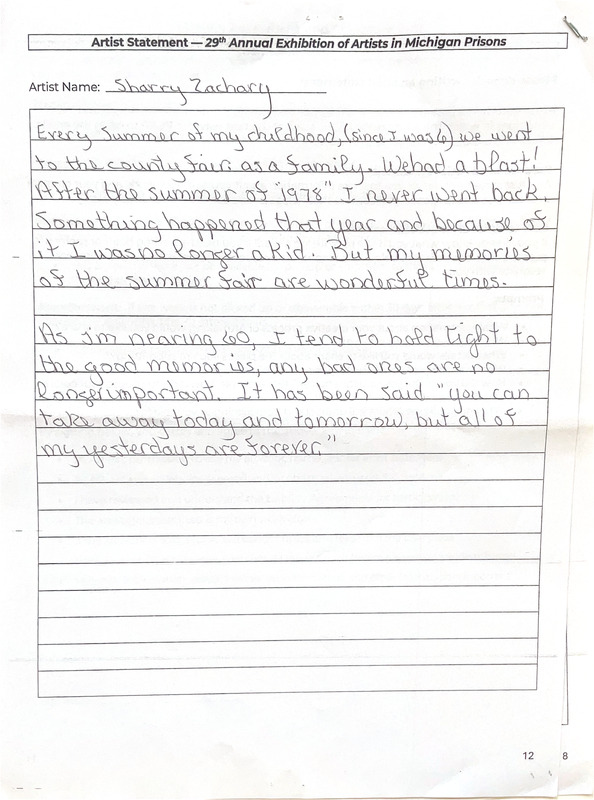 Artist Statement — 29th Annual Exhibition of Artists in Michigan Prisons
Artist Name: Sharry Zachary
Every Summer of my childhood, (since I was 6) we went
to the county fair as a family. We had a blast!
After the summer of "1978" I never went back.
Something happened that year and because of
it I was no longer a kid. But my memories
of the summer fair are wonderful times.
As I'm nearing 60, I tend to hold tight to
the good memories, any bad ones are no
longer important. It has been said "you can
take away today and tomorrow, but all of
my yesterdays are forever."
12
8